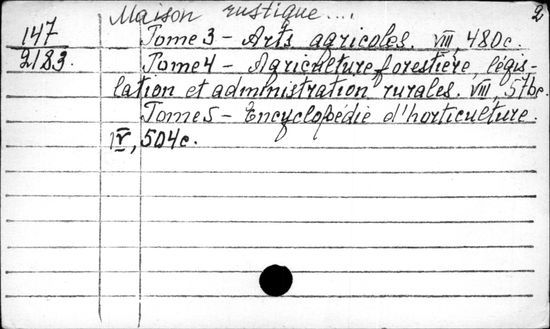 Maison rustique.... 2
147 Tome 3 - Arts agricoles. VIII, 480c.
2183. Tome 4 - Agriculture forestière, légis-
lation et administration rurales. VIII, 576c.
Tome 5 - Encyclopédie d'horticulture.
IV, 504c.